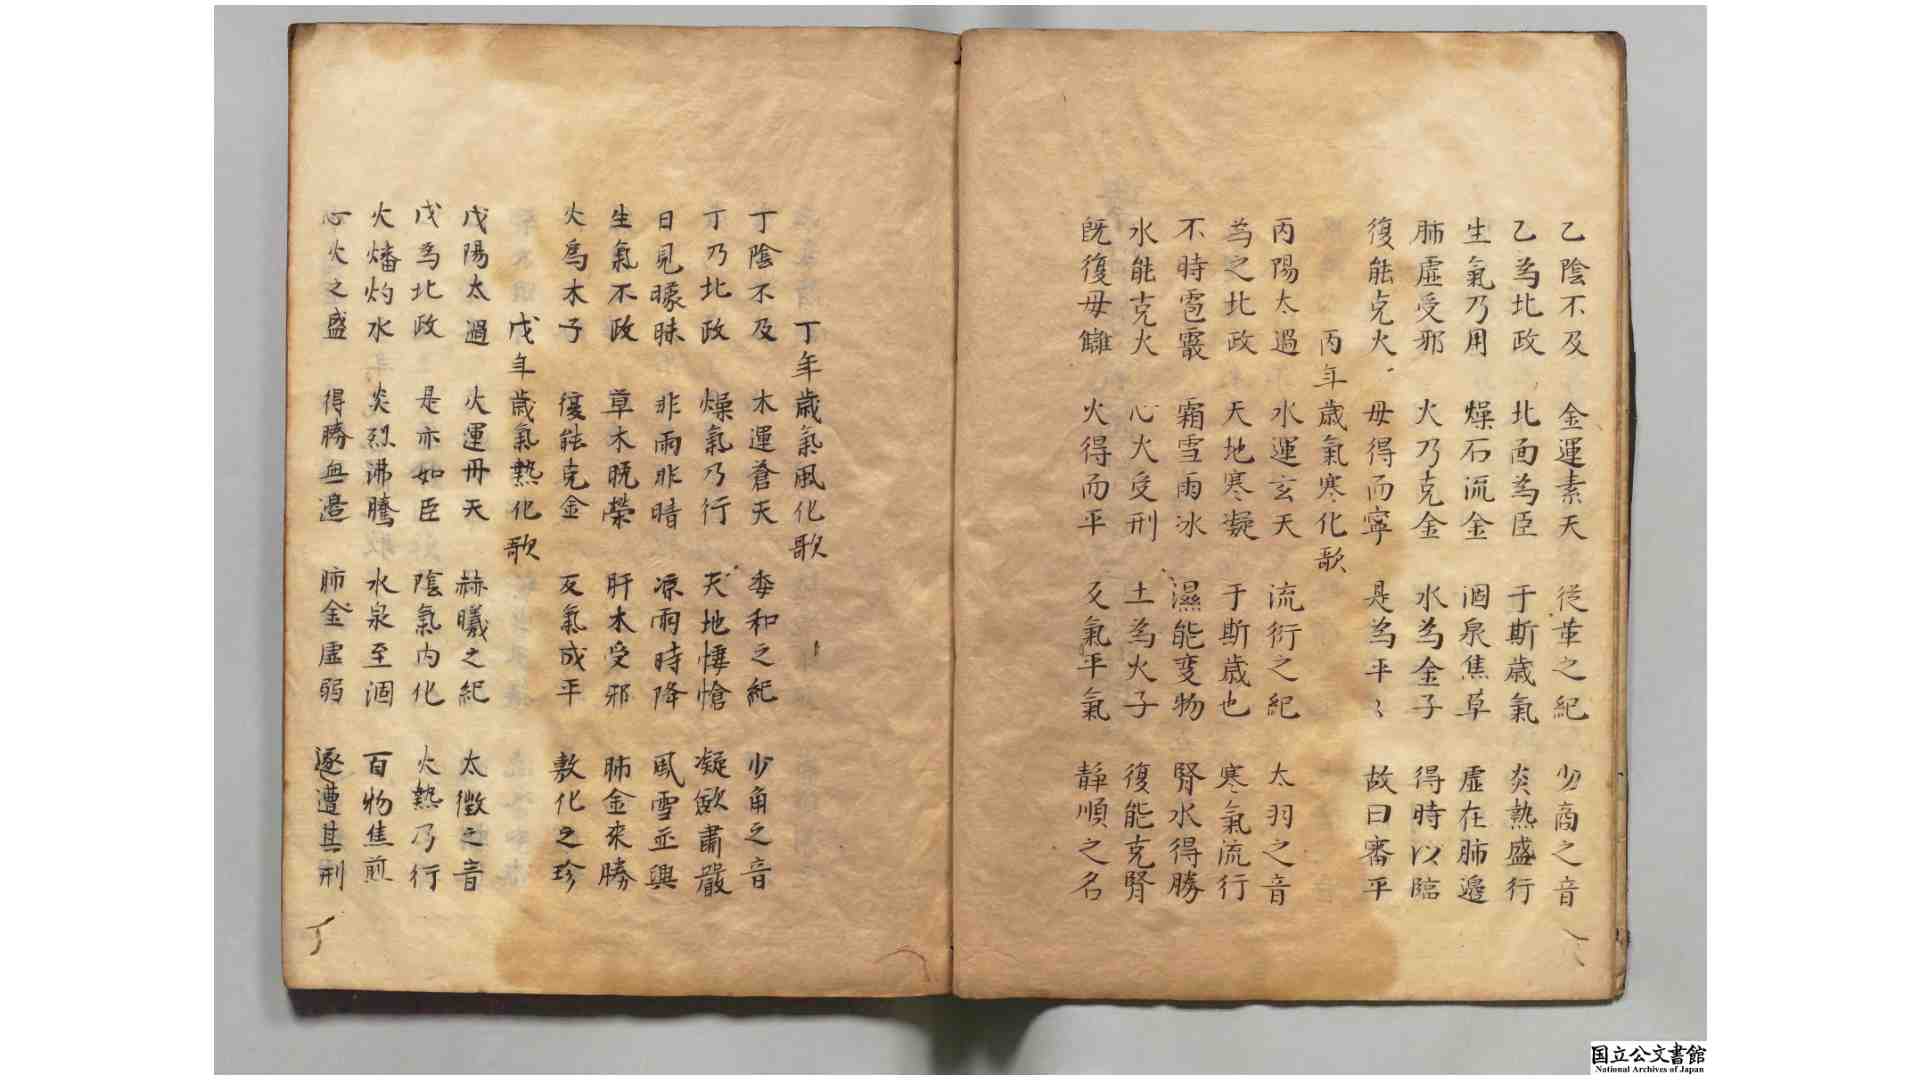 乙陰不及 金運素天 從革之紀 少商之音
乙為北政 北面為臣 于斯歳氣 炎熱盛行
生氣乃用 燥石流金 涸泉焦草 虚在肺邉
肺虚受邪 火乃克金 水為金子 得時以臨
復能克火 毋得而寧 是為平〻 故曰審平
丙年歳氣寒化歌
丙陽太過 水運玄天 流衍之紀 太羽之音
為之北政 天地寒凝 于斯歳也 寒氣流行
不時雹霰 霜雪雨冰 濕能変物 腎水得勝
水能克火 心火受刑 土為火子 復能克腎
既復毋讎 火得而平 反氣平氣 靜順之名
丁年歳氣風化歌
丁陰不及 木運蒼天 委和之紀 少角之音
丁乃北政 燥氣乃行 天地悽愴 凝斂肅嚴
日見曚昧 非雨非晴 凉雨時降 風雪並興
生氣不政 草木既榮 肝木受邪 肺金來勝
火爲木子 復能克金 反氣成平 敷化之珍
戊年歳氣熱化歌
戊陽太過 火運丹天 赫曦之紀 太徴之音
戊為北政 是亦如臣 陰氣内化 火熱乃行
火燔灼水 炎烈沸騰 水泉至涸 百物焦煎
心火之盛 得勝無邉 肺金虚弱 逐遭其刑
国立公文書館
National Archives of Japan